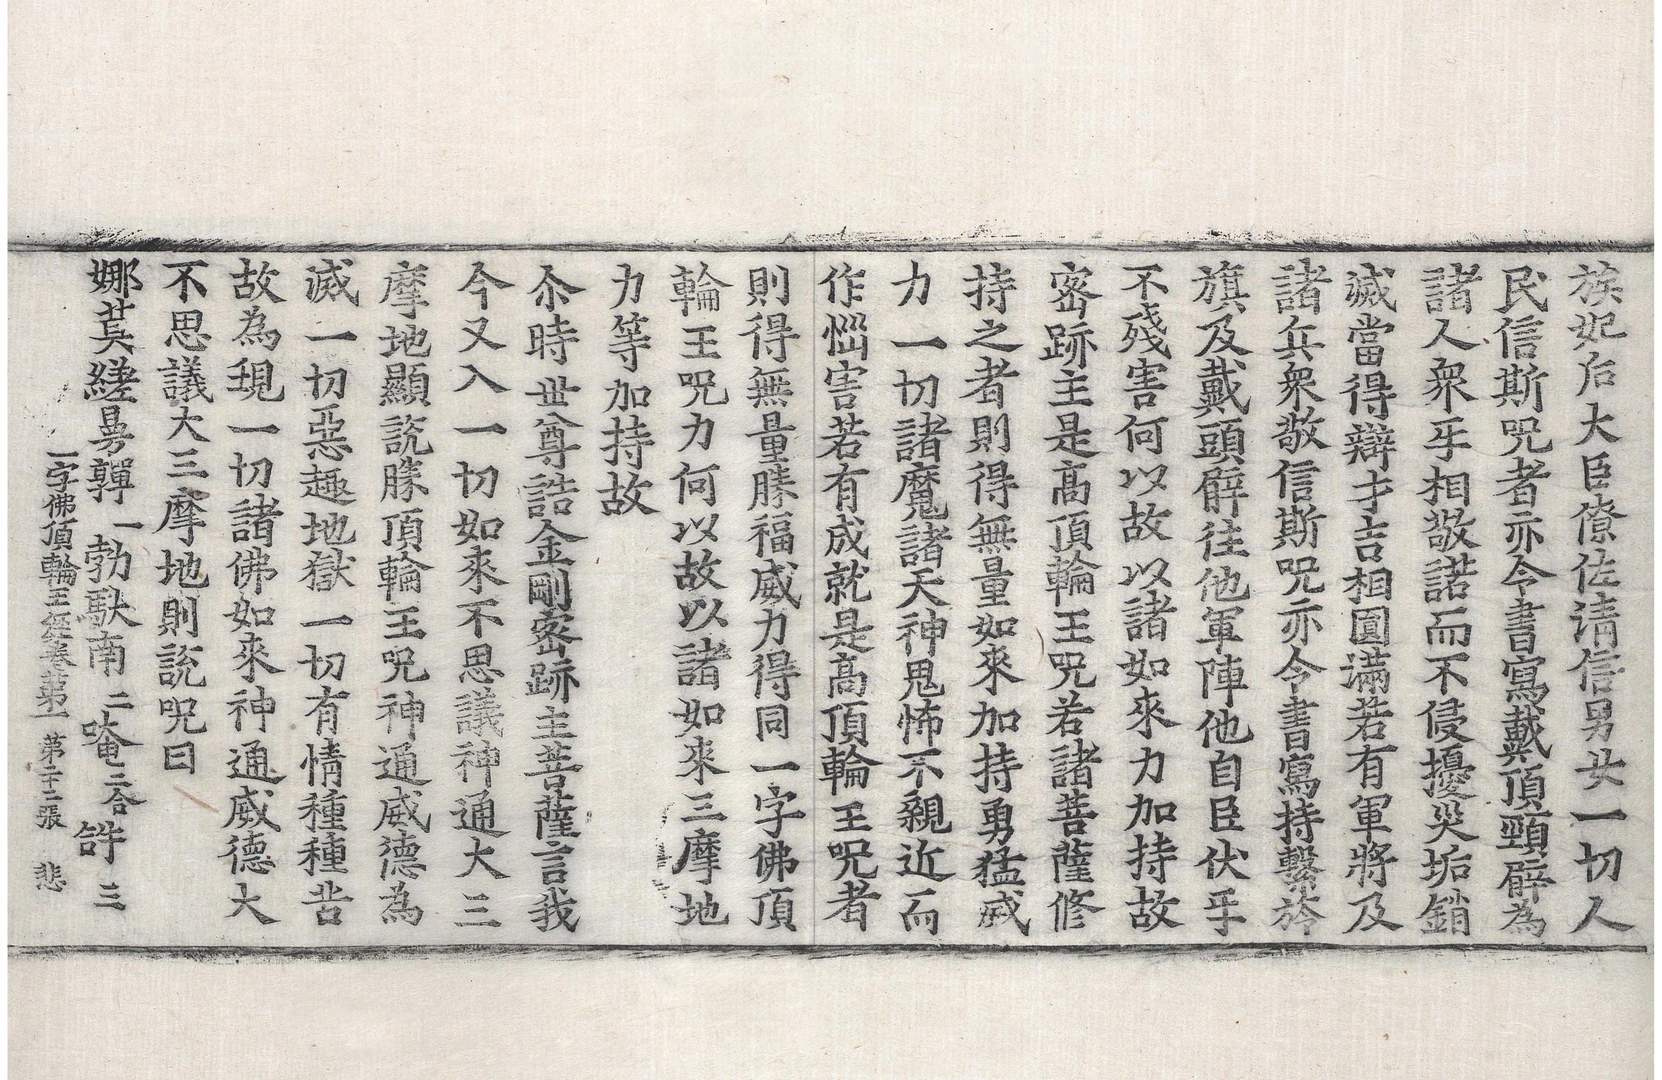 族妃后大臣僚佐清信男女一切人
民信斯呪者亦令書寫戴頂頸臂為
諸人衆㸦相敬諾而不侵擾災垢銷
滅當得辯才吉相圓滿若有軍將及
諸兵衆敬信斯呪亦令書寫持繫於
旗及戴頭臂往他軍陣他自臣伏㸦
不殘害何以故以諸如來力加持故
密跡主是高頂輪王呪若諸菩薩修
持之者則得無量如來加持勇猛威
力一切諸魔諸天神鬼怖不親近而
作惱害若有成就是高頂輪王呪者
則得無量勝福威力得同一字佛頂
輪王呪力何以故以諸如來三摩地
力等加持故
尒時世尊誥金剛密跡主菩薩言我
今又入一切如來不思議神通大三
摩地顯說勝頂輪王呪神通威德為
滅一切惡趣地獄一切有情種種苦
故為現一切諸佛如來神通威德大
不思議大三摩地則說呪曰
娜莫縒曼嚲一勃馱南二唵二合𤙖三
一字佛頂輪王經卷第一 第二十二張 悲